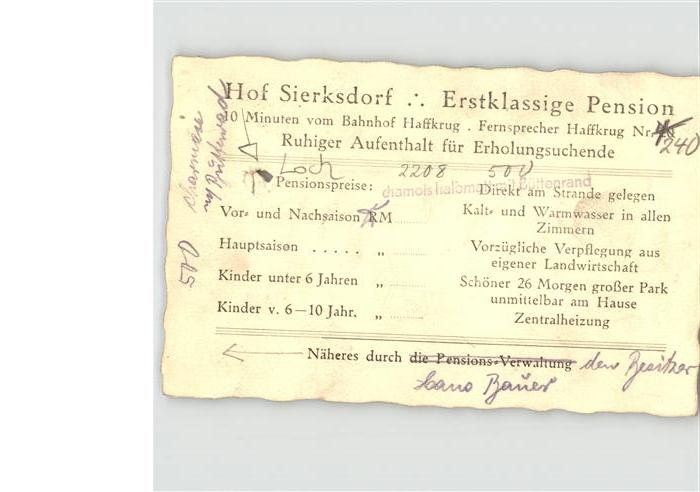 Hof Sierksdorf ∴ Erstklassige Pension
10 Minuten vom Bahnhof Haffkrug . Fernsprecher Haffkrug Nr.
240
Ruhiger Aufenthalt für Erholungsuchende
Loch 2208 500
chamois halbmatt mit Büttenrand
Pensionspreise:
Vor- und Nachsaison RM
Hauptsaison ..... „
Kinder unter 6 Jahren „
Kinder v. 6—10 Jahr. „
Direkt am Strande gelegen
Kalt- und Warmwasser in allen
Zimmern
Vorzügliche Verpflegung aus
eigener Landwirtschaft
Schöner 26 Morgen großer Park
unmittelbar am Hause
Zentralheizung
Näheres durch die Pensions-Verwaltung den Besitzer
Bauer
500 chamois